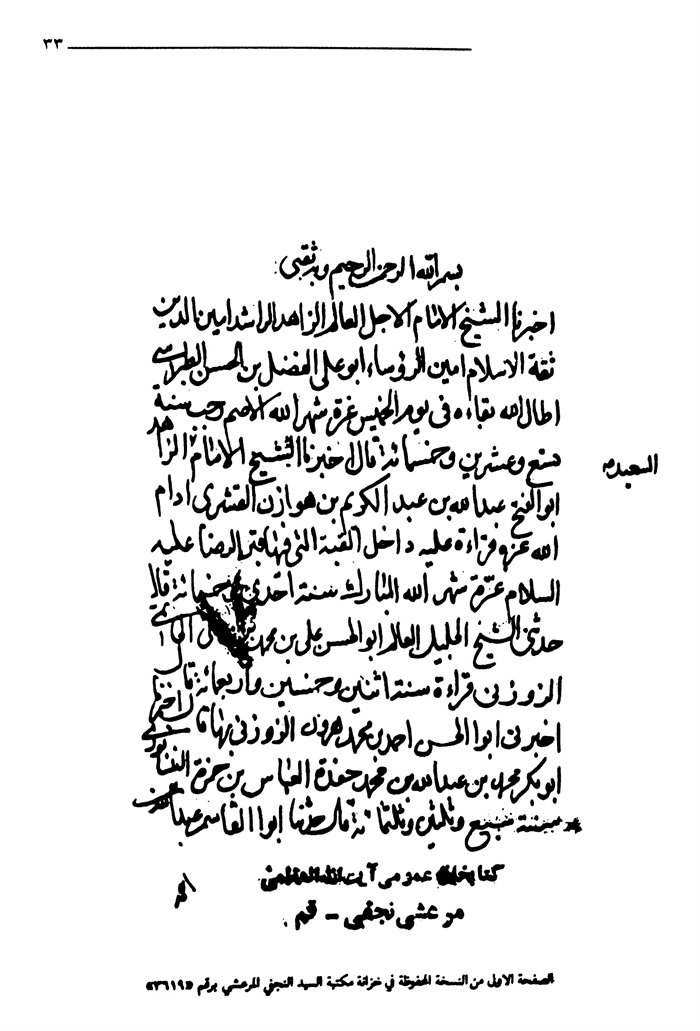 ٣٣
بسم الله الرحمن الرحيم وبه ثقتي
اخبرنا الشيخ الامام الاجل العالم الزاهد الراشد امين الدين
ثقة الاسلام امين الرؤساء ابو على الفضل بن الحسن الطبرسي
اطال الله بقاءه فى يوم الخميس غرة شهر الله الاصم رجب سنة
تسع وعشرين وخمسمائة قال اخبرنا الشيخ الامام الزاهد
السعيد
ابو الفتح عبدالله بن عبد الكريم بن هوازن القشيرى ادام
الله عزه قراءة عليه داخل القبة التى فيها قبر الرضا عليه
السلام غرة شهر الله المبارك سنة احدى وخمسمائة قال
حدثنى الشيخ الجليل العالم ابو الحسن على بن محمد بن على
الزوزنى قراءة سنة اثنين وخمسين واربعمائة قال
اخبرنى ابوا الحسن احمد بن محمد هرون الزوزنى بها قال اخبرنا
ابو بكر محمد بن عبدالله بن محمد حفدة العباس بن حمزة النيشابورى
سنة سبع وثلثين وثلثمائة قال حدثنا ابوا القاسم عبدالله بن
احمد
كتابخانه عمومى آيت الله العظمى
مرعشى نجفى - قم
الصفحة الاولى من النسخة المحفوظة في خزانة مكتبة السيد النجفي المرعشي برقم «٣٦١٩»